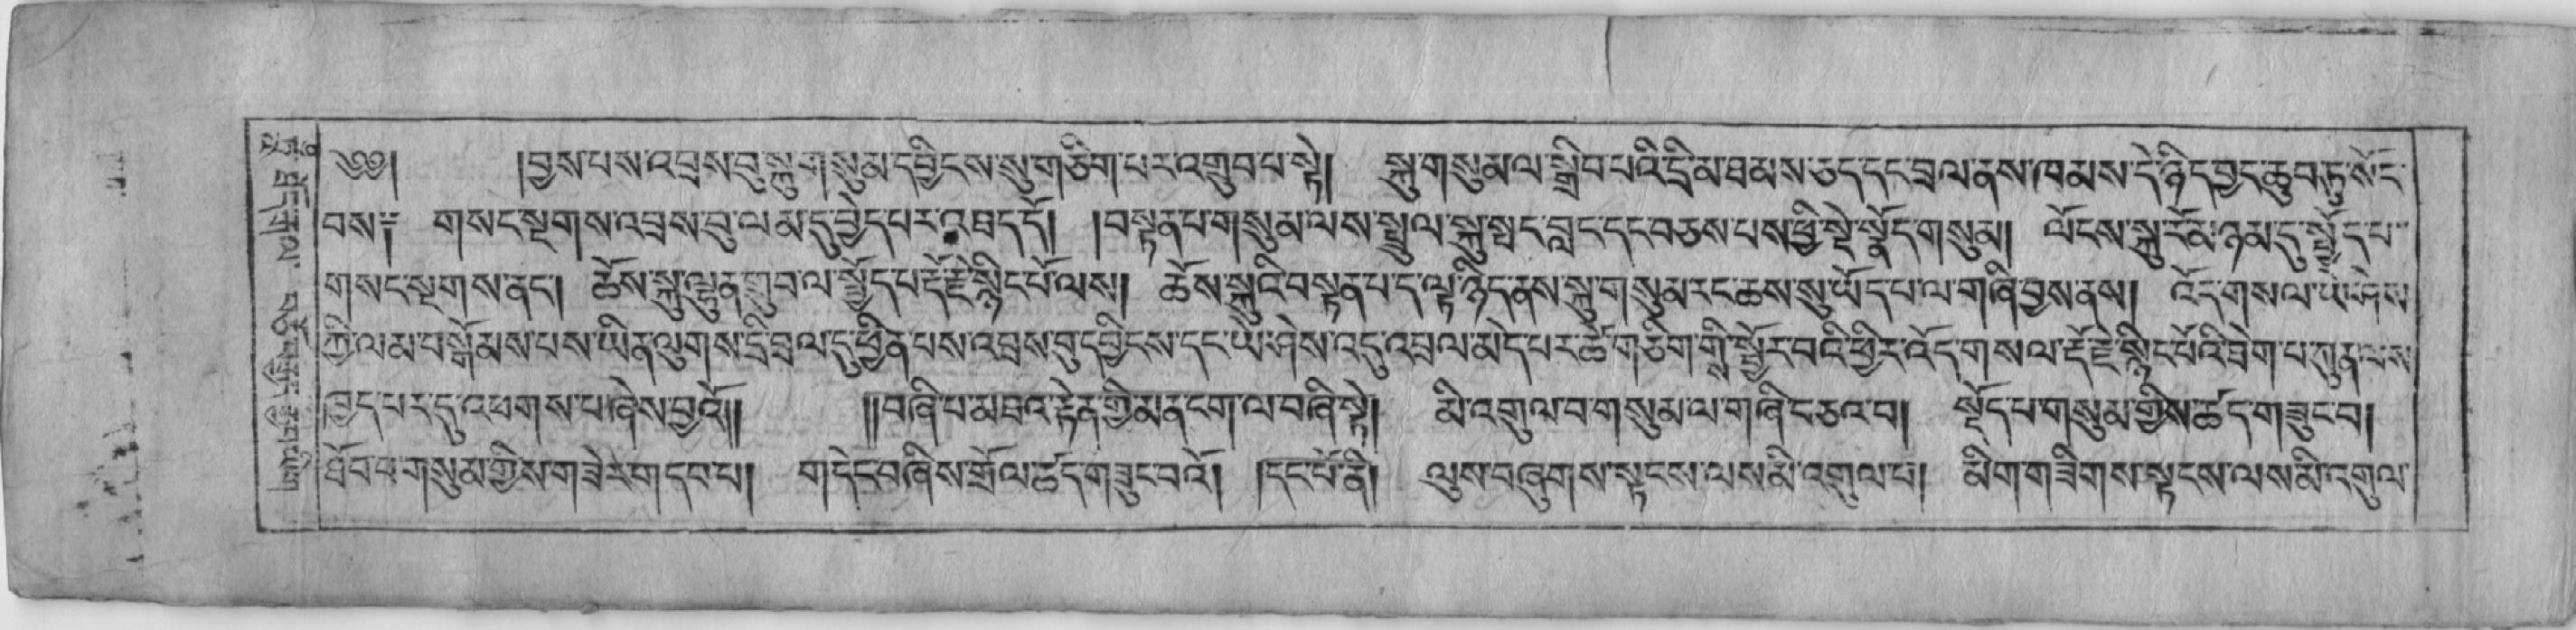 ༄༅། །བྱས་པས་འབྲས་བུ་སྐུ་གསུམ་དབྱིངས་སུ་གཅིག་པར་འགྲུབ་པ་སྟེ། སྐུ་གསུམ་ལ་སྒྲིབ་པའི་དྲི་མ་ཐམས་ཅད་དང་བྲལ་ནས་ཁམས་དེ་ཉིད་བྱང་ཆུབ་ཏུ་སོང་
བས༔ གསང་སྔགས་འབྲས་བུ་ལམ་དུ་བྱེད་པར་འཐད་དོ། །བསྟན་པ་གསུམ་ལས་སྤྲུལ་སྐུ་སྤང་བླང་དང་བཅས་པས་ཕྱི་སྡེ་སྣོད་གསུམ། ལོངས་སྐུ་རོ་མཉམ་དུ་སྤྱོད་པ་
གསང་སྔགས་ནང་། ཆོས་སྐུ་ལྷུན་གྲུབ་ལ་སྤྱོད་པ་རྡོ་རྗེ་སྙིང་པོ་ལས། ཆོས་སྐུའི་བསྟན་པ་ད་ལྟ་ཉིད་ནས་སྐུ་གསུམ་རང་ཆས་སུ་ཡོད་པ་ལ་གཞི་བྱས་ནས། འོད་གསལ་ཡེ་ཤེས་
ཀྱི་ལམ་བསྒོམས་པས་ཡིན་ལུགས་དྲི་བྲལ་དུ་ཕྱིན་པས་འབྲས་བུ་དབྱིངས་དང་ཡེ་ཤེས་འདུ་འབྲལ་མེད་པར་ཚེ་གཅིག་གིས་སྦྱོར་བའི་ཕྱིར་འོད་གསལ་རྡོ་རྗེ་སྙིང་པོའི་ཐེག་པ་ཀུན་ལས་
ཁྱད་པར་དུ་འཕགས་པ་ཞེས་བྱའོ།། །།བཞི་པ་མཐའ་རྟེན་གྱི་མན་ངག་ལ་བཞི་སྟེ། མི་འགུལ་བ་གསུམ་ལ་གཞི་བཅའ་བ། སྡོད་པ་གསུམ་གྱིས་ཚད་གཟུང་བ།
ཐོབ་པ་གསུམ་གྱིས་གཟེར་གདབ་པ། གདེང་བཞིས་གྲོལ་ཚད་གཟུང་བའོ། །དང་པོ་ནི། ལུས་བཞུགས་སྟངས་ལས་མི་འགུལ་བ། མིག་གཟིགས་སྟངས་ལས་མི་འགུལ་